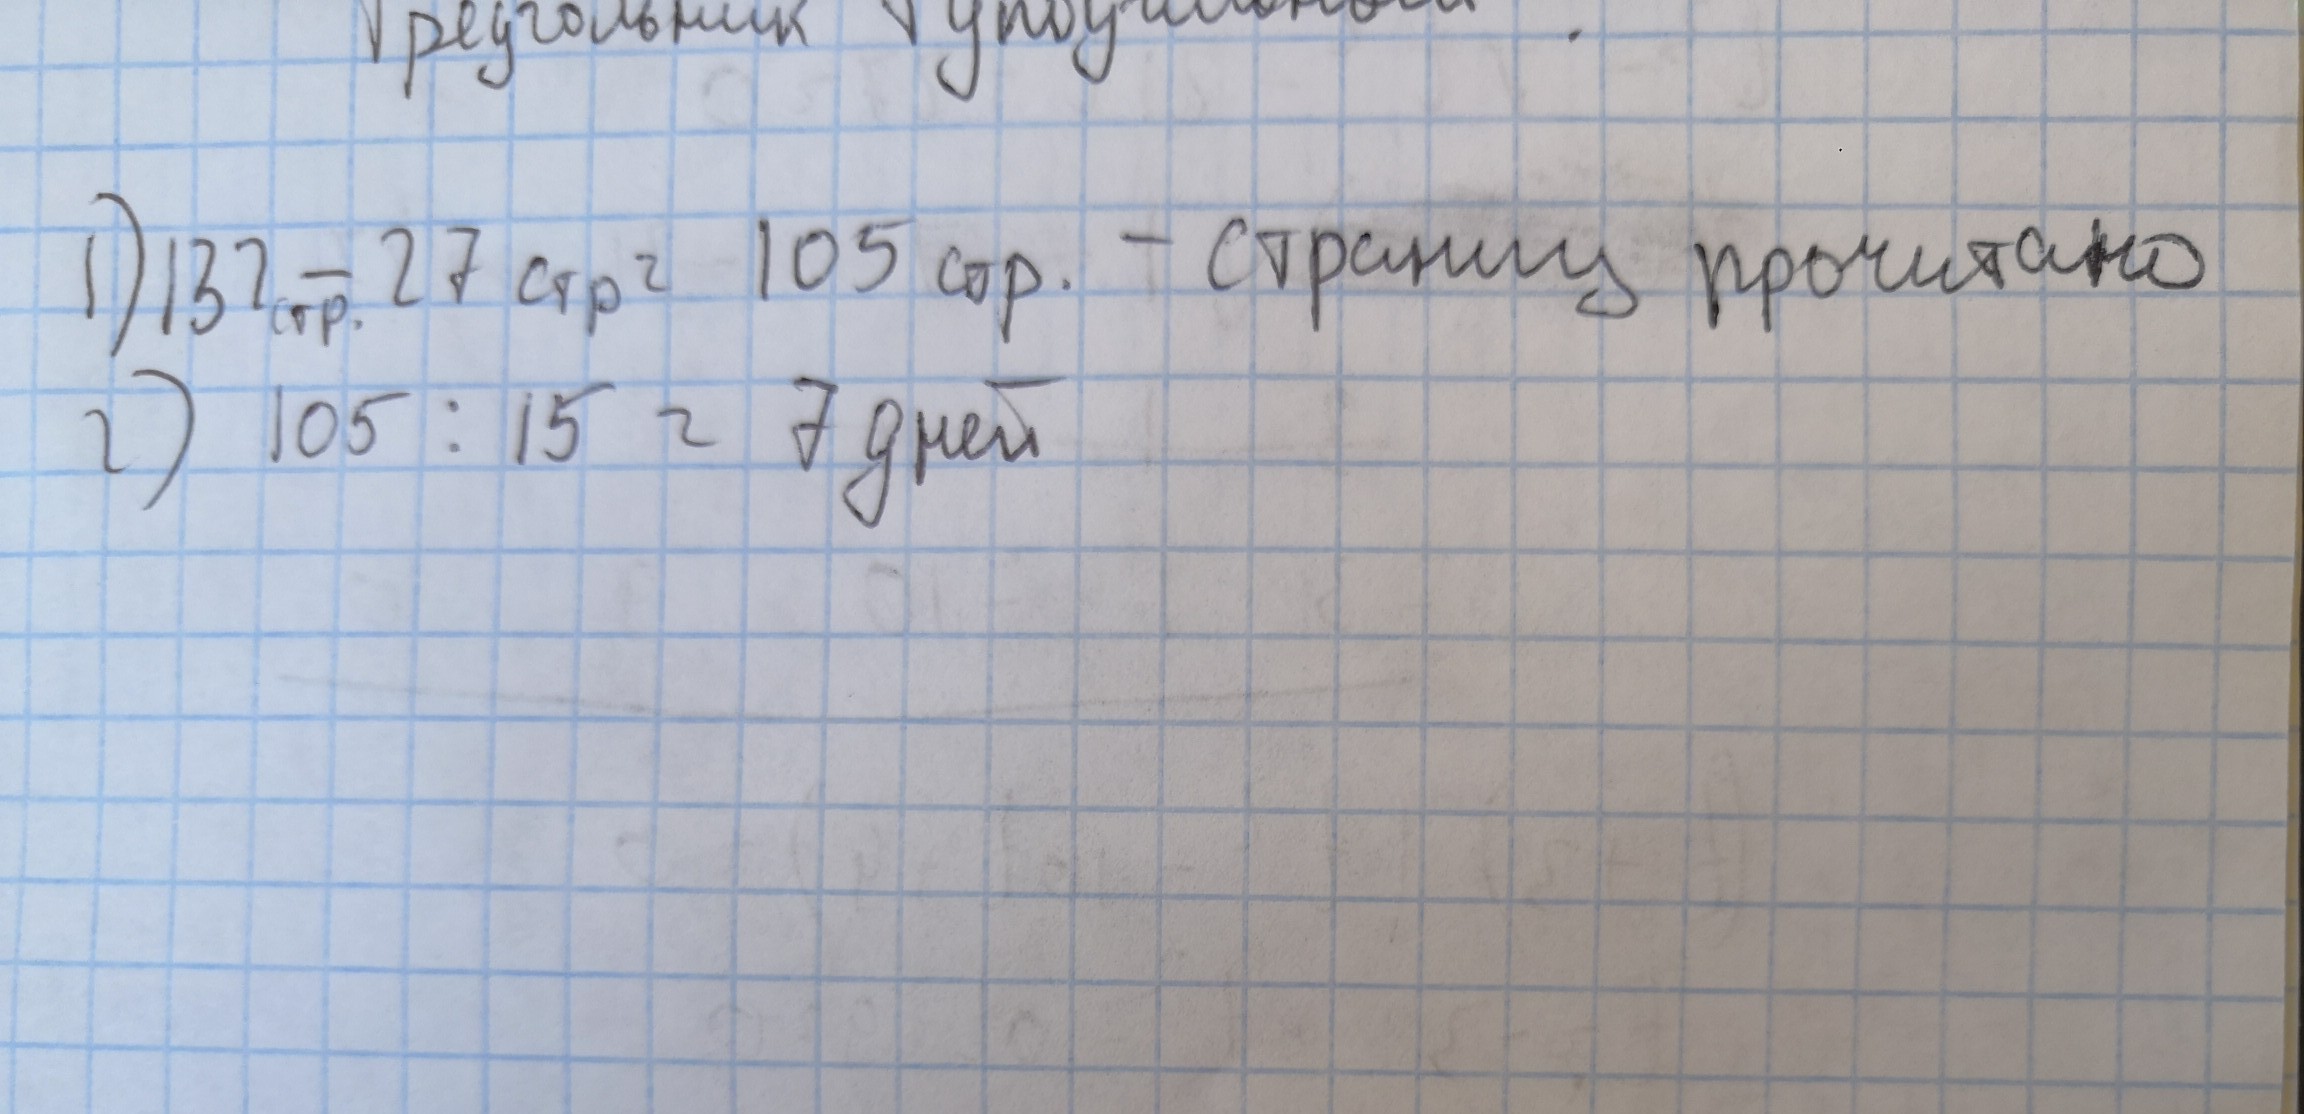 Треугольник тупоугольный.
1) 132 стр. - 27 стр = 105 стр. - страниц прочитано
2) 105 : 15 = 7 дней